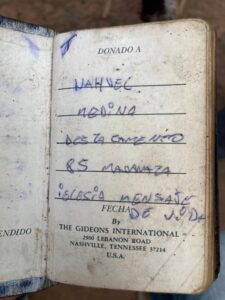 DONADO A
NAHUEL
MEDINA
DESTACAMENTO
85 MADANAZA
iglesia MENSAJE
DE VIDA
FECHA
By
THE GIDEONS INTERNATIONAL
2900 LEBANON ROAD
NASHVILLE, TENNESSEE 37214
U.S.A.
ENDIDO